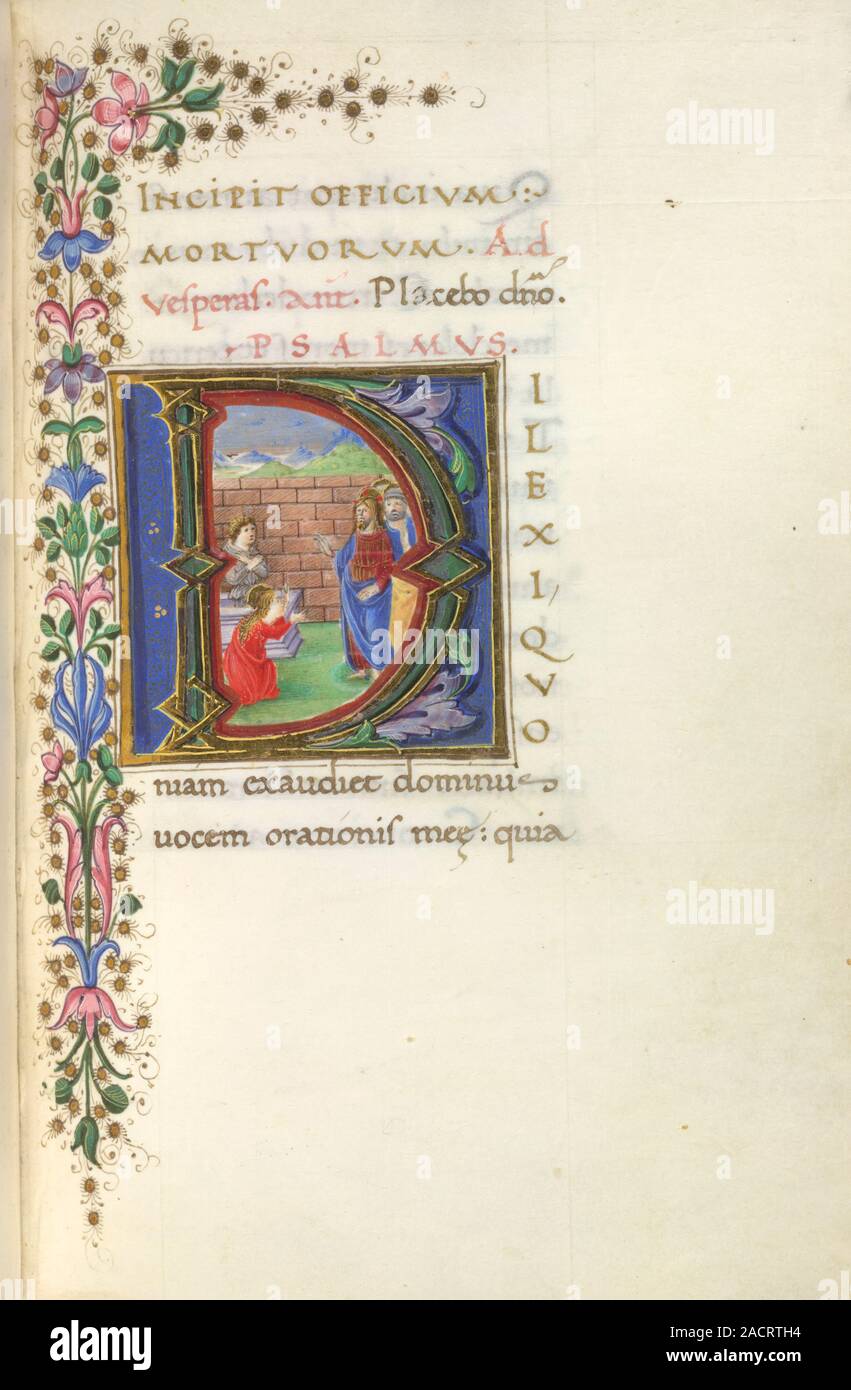 INCIPIT OFFICIVM :~
MORTVORVM. Ad
vesperas. Ant. Placebo dno.
PSALMVS.
D
I
L
E
X
I,
Q
V
O
niam exaudiet dominu
uocem orationis meę: quia
alamy
alamy
alamy
alamy
alamy
Image ID: 2ACRTH4
www.alamy.com